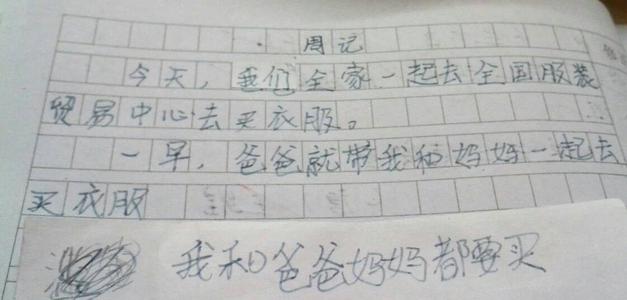 周记
今天，我们全家一起去全国服装
贸易中心去买衣服。
一早，爸爸就带我和妈妈一起去
买衣服
我和爸爸妈妈都要买